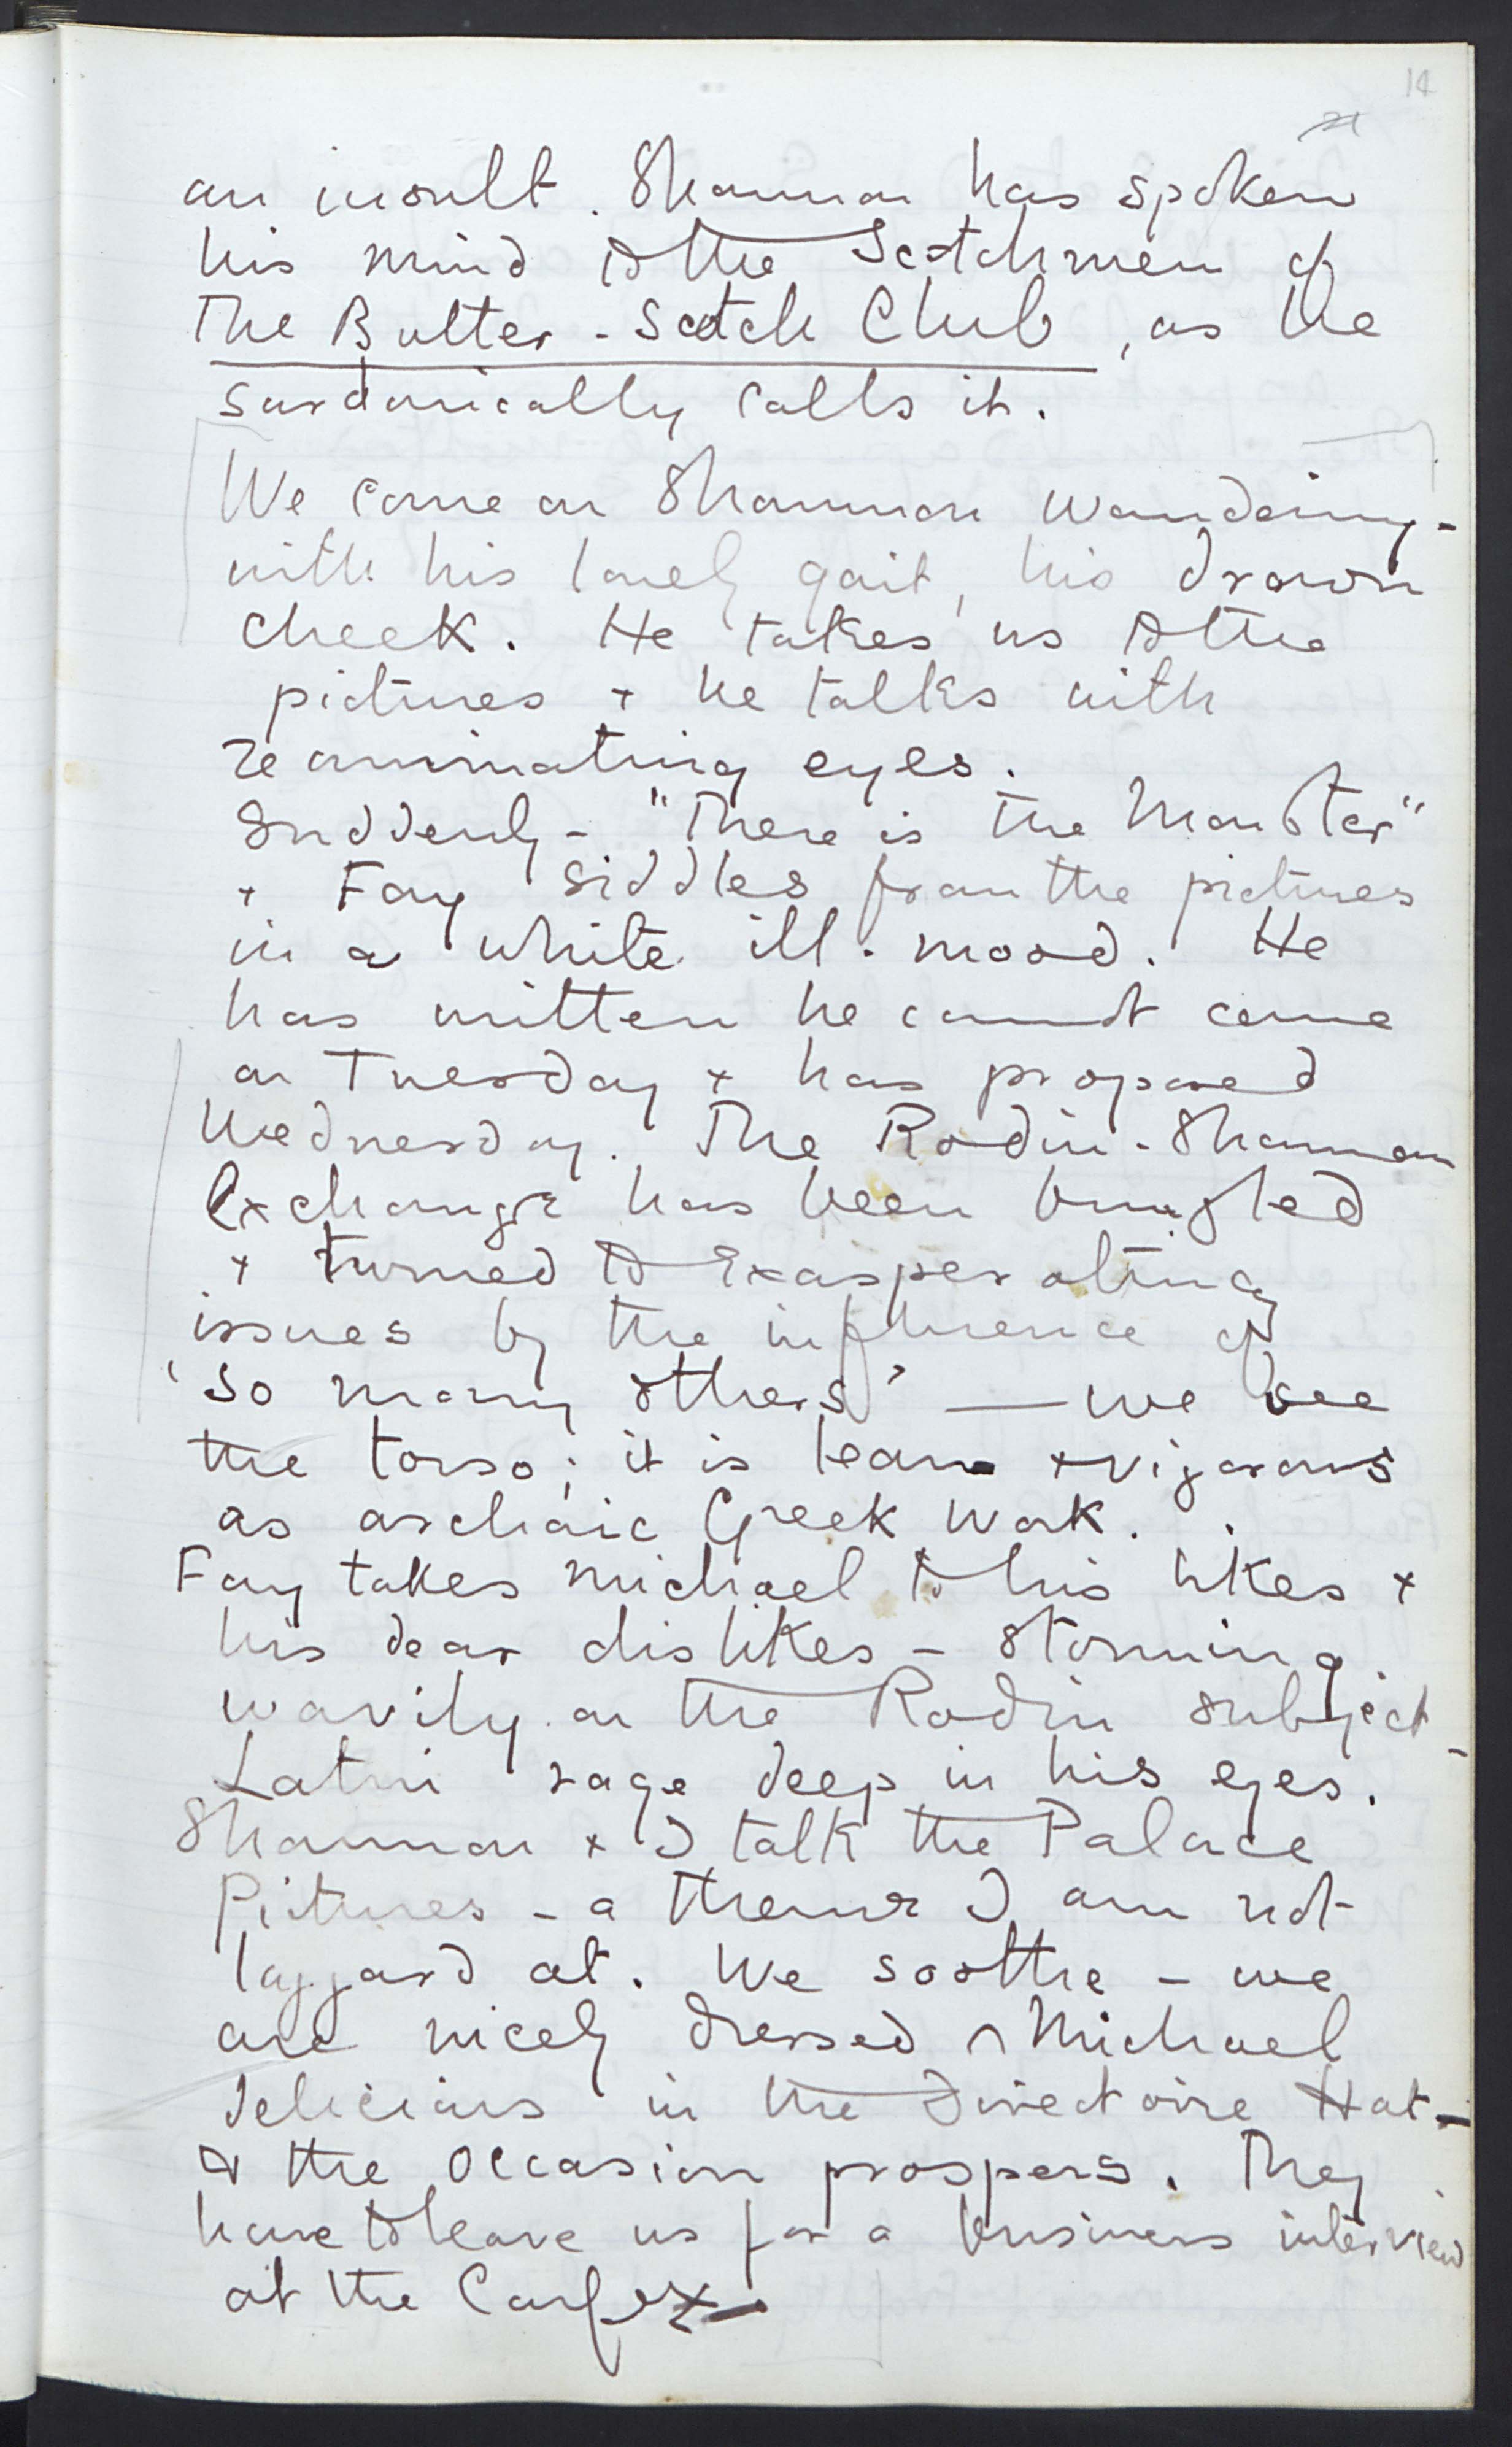 14
21
an insult. Shannon has spoken
his mind to the Scotchmen of
The Butter-Scotch Club, as he
sardonically calls it.
We come on Shannon wandering -
with his lonely gait, his drawn
cheek. He takes us to the
pictures + he talks with
reanimating eyes.
Suddenly - "There is the Monster"
+ Fay siddles from the pictures
in a white ill-mood. He
has written he cannot come
on Tuesday + has proposed
Wednesday. The Rodin-Shannon
Exchange has been bungled
+ turned to exasperating
issues by the influence of
'so many others' — we see
the torso; it is lean + vigorous
as archaic Greek work.
Fay takes Michael to his likes +
his dear dislikes - storming
wavily on the Rodin subject -
Latin rage deep in his eyes.
Shannon + I talk the Palace
Pictures - a theme I am not
laggard at. We soothe - we
are nicely dressed, Michael
delicious in the Directoire Hat -
& the occasion prospers. They
have to leave us for a business interview
at the Carfax